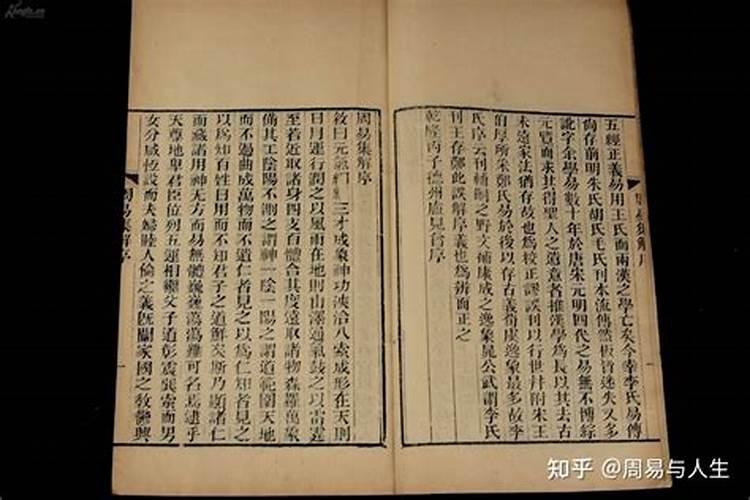 五經正義易用王氏而兩漢之學亡矣今幸李氏易傳
尚存前明朱氏胡氏毛氏刊本流傳然板皆迷失又多
訛字余學易數十年於唐宋元明四代之易無不博綜
元覽而求其得聖人之遺意者推漢學為長以其去古
未遠家法猶存故也為校正謬誤刊以行世并附宋王
伯厚所采鄭氏易於後以存古義荀虞逸象最多故李
氏序云刊輔嗣之野文補康成之逸象晁公武謂李氏
刊王存鄭此誤解序義也為辨而正之
乾隆丙子德州盧見曾序
周易集解序
周易集解序
敘曰元氣 三才成象神功浹洽八索成形在天則
日月運行潤之以風雨在地則山澤通氣鼓之以雷霆
至若近取諸身四支百體合其度遠取諸物森羅萬象
備其工陰陽不測之謂神一陰一陽之謂道範圍天地
而不過曲成萬物而不遺仁者見之以為仁知者見之
以為知百姓日用而不知君子之道鮮矣斯乃顯諸仁
而藏諸用神无方而易無體巍巍蕩蕩難可名焉逮乎
天尊地卑君臣位列五運相繼父子道彰震巽索而男
女分咸恆設而夫婦睦人倫之義既闡家國之教鬱興
周易集解序
知乎 @周易与人生